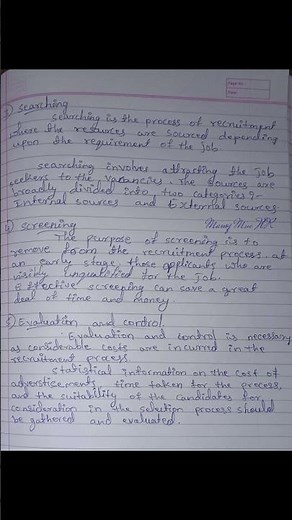 3) Searching
Searching is the process of recruitment
where the resources are sourced depending
upon the requirement of the job.
searching involves attracting the job
seekers to the vacancies. The sources are
broadly divided into two categories:-
Internal sources and External sources.
screening
The purpose of screening is to
remove from the recruitment process, at
an early stage, those applicants who are
visibly unqualified for the job.
Effective screening can save a great
deal of time and money.
5) Evaluation and control
Evaluation and control is necessary
as considerable costs are incurred in the
recruitment process
statistical information on the cost of
adverstisements, time taken for the process,
and the suitability of the candidates for
consideration in the selection process should
be gathered and evaluated.